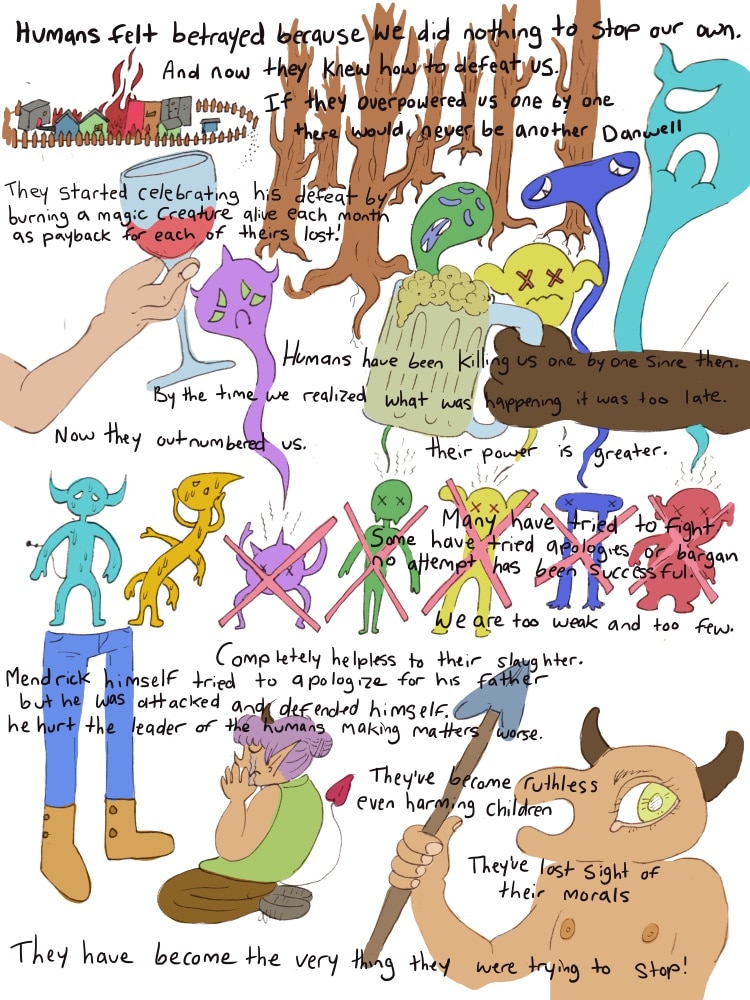 Humans felt betrayed because we did nothing to stop our own.
And now they knew how to defeat us.
If they overpowered us one by one
there would never be another Danwell
They started celebrating his defeat by
burning a magic creature alive each month
as payback for each of theirs lost!
Humans have been killing us one by one sinre then.
By the time we realized what was happening it was too late.
Now they outnumbered us.
their power is greater.
Many have tried to fight
Some have tried apologies or bargan
no attempt has been successful.
We are too weak and too few.
Completely helpless to their slaughter.
Mendrick himself tried to apologize for his father
but he was attacked and defended himself.
he hurt the leader of the humans making matters worse.
They've become ruthless
even harming children
They've lost sight of
their morals
They have become the very thing they were trying to stop!